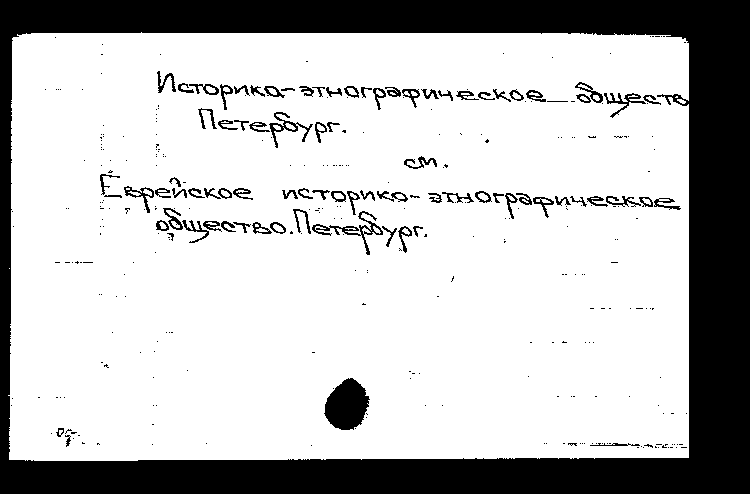 Историко-этнографическое обществ
Петербург.
см.
Еврейское историко-этнографическое
общество. Петербург.